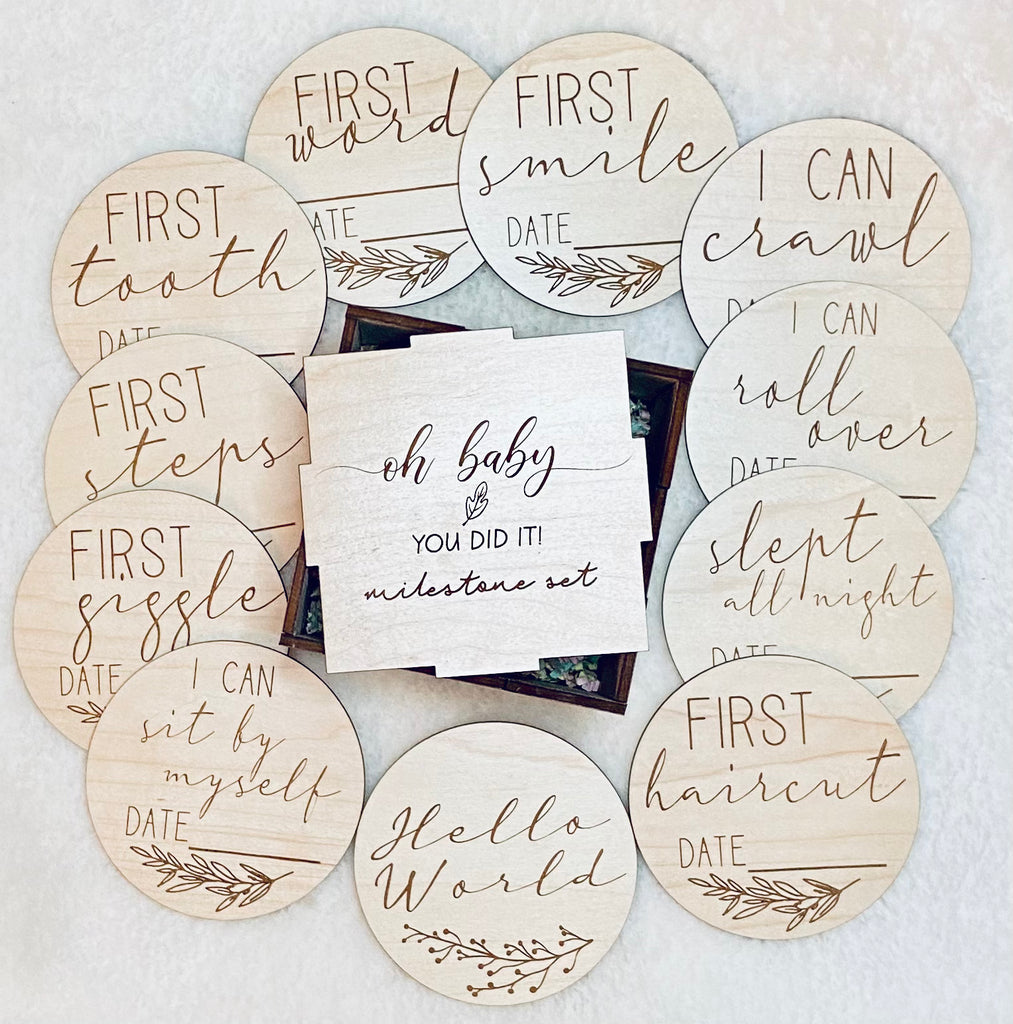 FIRST
word
ATE
FIRST
smile
DATE
I CAN
crawl
DA
FIRST
tooth
DATE
I CAN
roll
over
DATE
FIRST
steps
oh baby
YOU DID IT!
milestone set
slept
all night
DATE
FIRST
giggle
DATE
I CAN
sit by
myself
DATE
Hello
World
FIRST
haircut
DATE